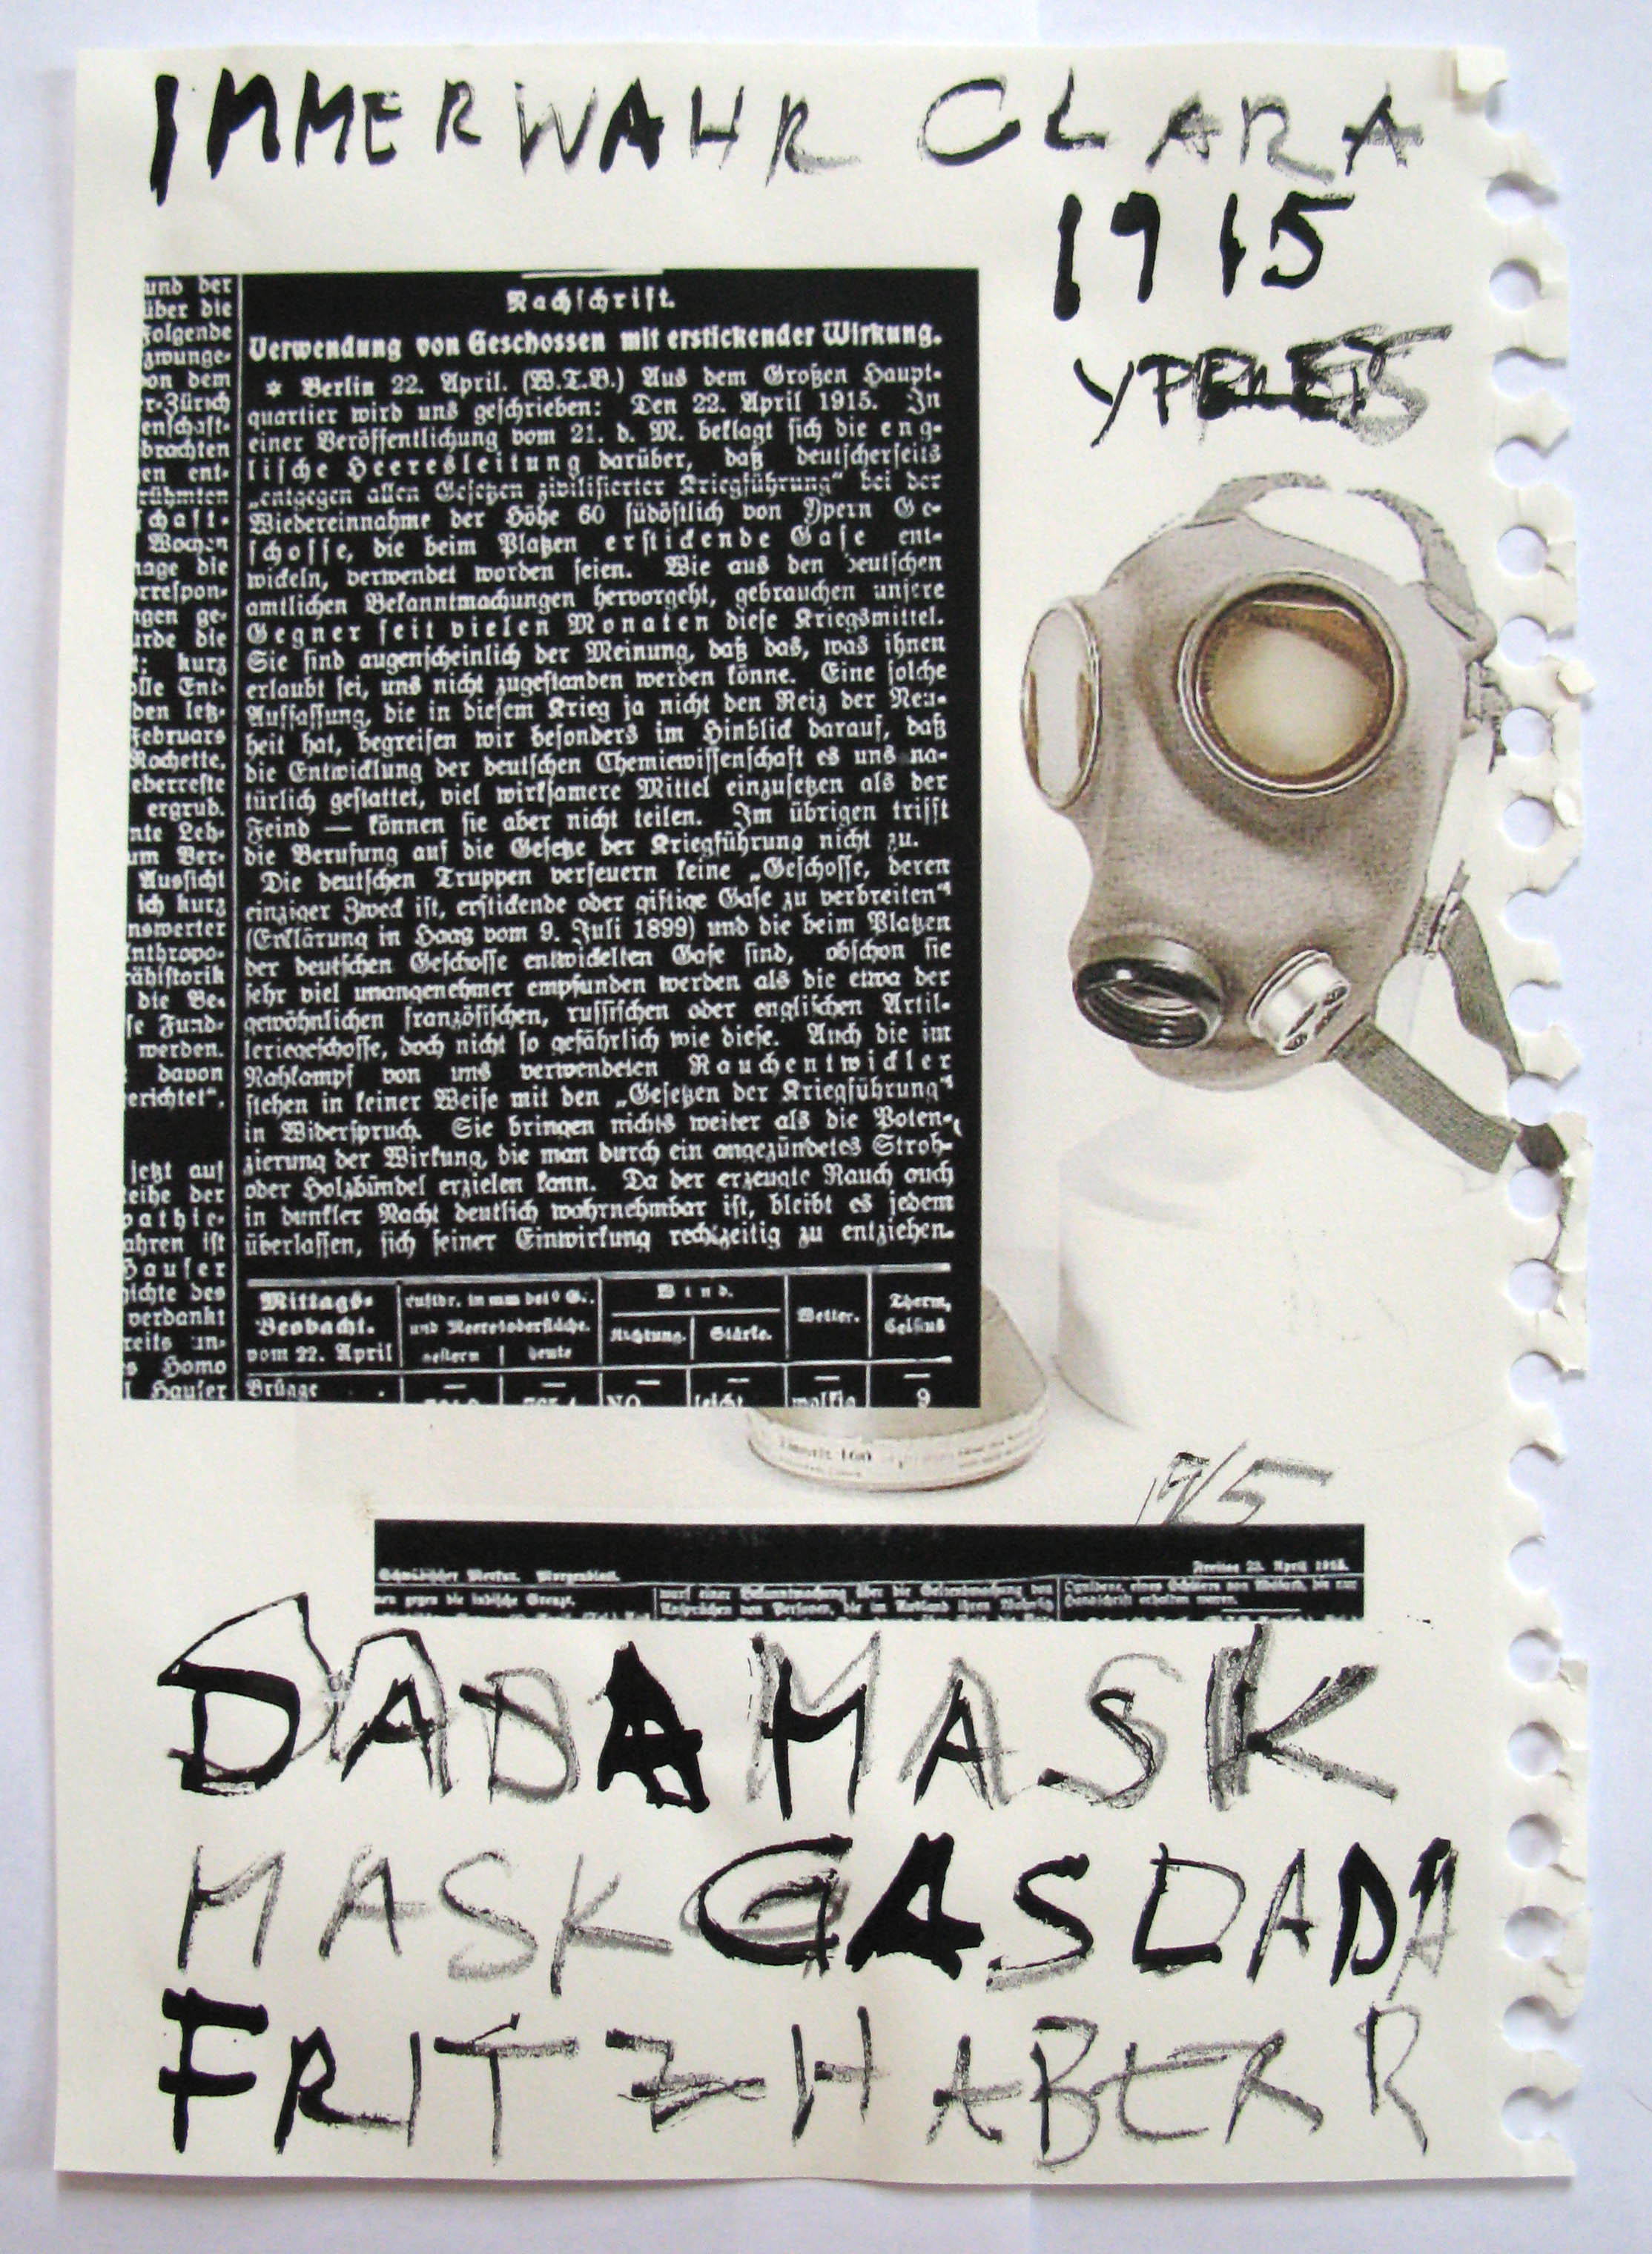 IMMERWAHR CLARA
1915
und der
über die
folgende
zwunge-
von dem
r-Zürich
enschaft-
brachten
en ent-
rühmten
schaft-
Wochen
nage die
rrespon-
ngen ge-
urde die
t: kurz
olle Ent-
den letz-
Februars
Rochette,
eberreste
ergrub.
nte Leh-
um Ver-
Aussicht
ich kurz
nswerter
nthropo-
rähistorik
die Be-
se Fund-
werden.
davon
erichtet“.
jetzt auf
eihe der
pathie-
ahren ist
Hauser
hichte des
verdankt
reits an-
s Homo
l Hauser
Nachschrift.
Verwendung von Geschossen mit erstickender Wirkung.
* Berlin 22. April. (W.T.B.) Aus dem Großen Haupt-
quartier wird uns geschrieben: Den 22. April 1915. In
einer Veröffentlichung vom 21. d. M. beklagt sich die eng-
lische Heeresleitung darüber, daß deutscherseits
„entgegen allen Gesetzen zivilisierter Kriegführung“ bei der
Wiedereinnahme der Höhe 60 südöstlich von Ypern Ge-
schosse, die beim Platzen erstickende Gase ent-
wickeln, verwendet worden seien. Wie aus den deutschen
amtlichen Bekanntmachungen hervorgeht, gebrauchen unsere
Gegner seit vielen Monaten diese Kriegsmittel.
Sie sind augenscheinlich der Meinung, daß das, was ihnen
erlaubt sei, uns nicht zugestanden werden könne. Eine solche
Auffassung, die in diesem Krieg ja nicht den Reiz der Neu-
heit hat, begreifen wir besonders im Hinblick darauf, daß
die Entwicklung der deutschen Chemiewissenschaft es uns na-
türlich gestattet, viel wirksamere Mittel einzusetzen als der
Feind — können sie aber nicht teilen. Im übrigen trifft
die Berufung auf die Gesetze der Kriegführung nicht zu.
Die deutschen Truppen verfeuern keine „Geschosse, deren
einziger Zweck ist, erstickende oder giftige Gase zu verbreiten“
(Erklärung in Haag vom 9. Juli 1899) und die beim Platzen
der deutschen Geschosse entwickelten Gase sind, obschon sie
sehr viel unangenehmer empfunden werden als die etwa der
gewöhnlichen französischen, russischen oder englischen Artil-
leriegeschosse, doch nicht so gefährlich wie diese. Auch die im
Nahkampf von uns verwendeten Rauchentwickler
stehen in keiner Weise mit den „Gesetzen der Kriegführung“
in Widerspruch. Sie bringen nichts weiter als die Poten-
zierung der Wirkung, die man durch ein angezündetes Stroh-
oder Holzbündel erzielen kann. Da der erzeugte Rauch auch
in dunkler Nacht deutlich wahrnehmbar ist, bleibt es jedem
überlassen, sich seiner Einwirkung rechtzeitig zu entziehen.
Mittags- Beobacht. vom 22. April
Luftdr. in mm bei 0 G. und Meeresoberfläche.
gestern | heute
Wind.
Richtung. Stärke.
Wetter.
Therm. Celsius
Brügge NO leicht wolkig 9
1915
Schwäbischer Merkur. Morgenblatt. Freitag 23. April 1915.
nen gegen die indische Grenze.
wurf einer Bekanntmachung über die Geltendmachung von
Ansprüchen von Personen, die im Ausland ihren Wohnsitz
Handschrift erhalten waren.
DADAMASK
MASKGASDADA
FRITZ HABERR